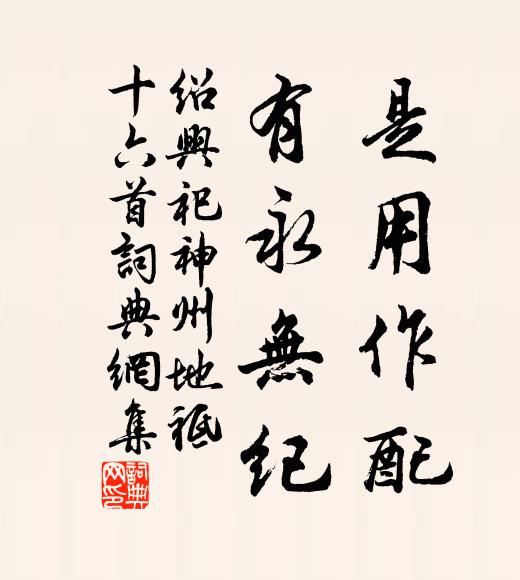 是用作配
有永無紀
紹興祀神州地祗
十六首詞典網集
詞典網印